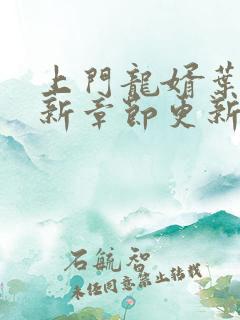 上門龍婿葉
新章節更新
石航智
未經同意禁止轉載